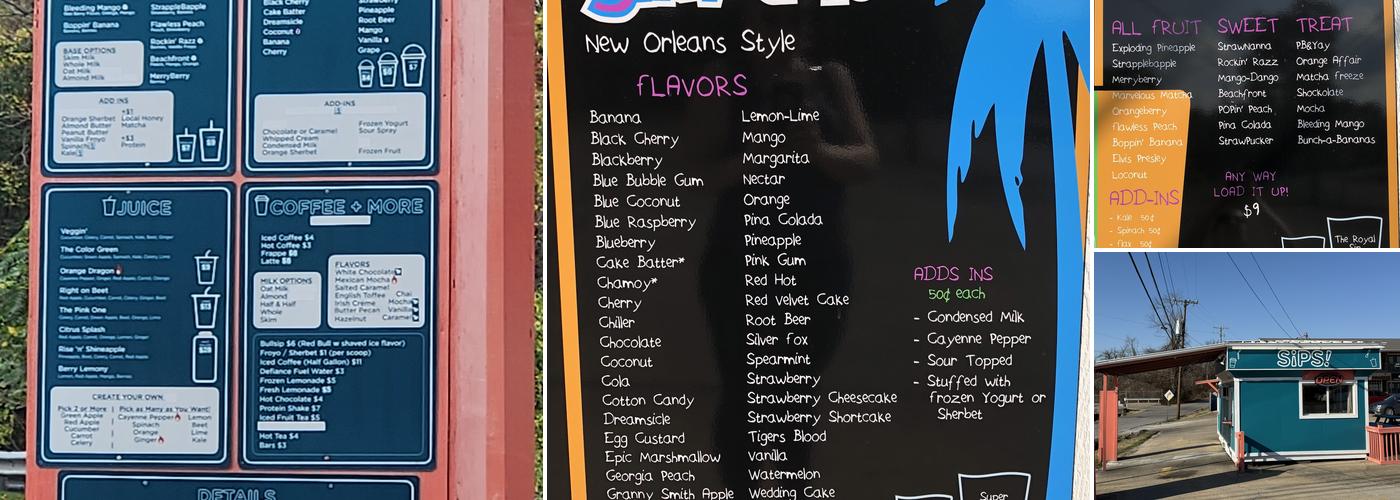 Bleeding Mango
Boppin' Banana
StrappleBapple
Flawless Peach
Rockin' Razz
Beachfront
MerryBerry
BASE OPTIONS
Skim Milk
Whole Milk
Oat Milk
Almond Milk
ADD INS
Orange Sherbet
Almond Butter
Peanut Butter
Vanilla Froyo
Spinach
Kale
+$1
Local Honey
Matcha
+$3
Protein
$7
$9
Black Cherry
Cake Batter
Dreamsicle
Coconut
Banana
Cherry
Strawberry
Pineapple
Root Beer
Mango
Vanilla
Grape
$4
$5
$7
ADD-INS
Chocolate or Caramel
Whipped Cream
Condensed Milk
Orange Sherbet
Frozen Yogurt
Sour Spray
Frozen Fruit
JUICE
Veggin'
The Color Green
Orange Dragon
Right on Beet
The Pink One
Citrus Splash
Rise 'n' Shineapple
Berry Lemony
CREATE YOUR OWN
Pick 2 or More
Green Apple
Red Apple
Cucumber
Carrot
Celery
Pick as Many as You Want!
Cayenne Pepper
Spinach
Orange
Ginger
Lemon
Beet
Lime
Kale
COFFEE + MORE
Iced Coffee $4
Hot Coffee $3
Frappe $8
Latte $8
MILK OPTIONS
Oat Milk
Almond
Half & Half
Whole
Skim
FLAVORS
White Chocolate
Mexican Mocha
Salted Caramel
English Toffee
Irish Creme
Butter Pecan
Hazelnut
Chai
Mocha
Vanilla
Caramel
Bullsip $6 (Red Bull w shaved ice flavor)
Froyo / Sherbet $1 (per scoop)
Iced Coffee (Half Gallon) $11
Defiance Fuel Water $3
Frozen Lemonade $5
Fresh Lemonade $5
Hot Chocolate $4
Protein Shake $7
Iced Fruit Tea $5
Hot Tea $4
Bars $3
DETAILS
New Orleans Style
FLAVORS
Banana
Black Cherry
Blackberry
Blue Bubble Gum
Blue Coconut
Blue Raspberry
Blueberry
Cake Batter*
Chamoy*
Cherry
Chiller
Chocolate
Coconut
Cola
Cotton Candy
Dreamsicle
Egg Custard
Epic Marshmallow
Georgia Peach
Granny Smith Apple
Lemon-Lime
Mango
Margarita
Nectar
Orange
Pina Colada
Pineapple
Pink Gum
Red Hot
Red Velvet Cake
Root Beer
Silver Fox
Spearmint
Strawberry
Strawberry Cheesecake
Strawberry Shortcake
Tigers Blood
Vanilla
Watermelon
Wedding Cake
ADDS INS
50¢ each
- Condensed Milk
- Cayenne Pepper
- Sour Topped
- Stuffed with
frozen Yogurt or
Sherbet
Super
ALL FRUIT
Exploding Pineapple
Strapplebapple
Merryberry
Marvelous Matcha
Orangeberry
Flawless Peach
Boppin' Banana
Elvis Presley
Loconut
ADD-INS
- Kale 50¢
- Spinach 50¢
- flax 50¢
SWEET
StrawNanna
Rockin' Razz
Mango-Dango
Beachfront
POPin' Peach
Pina Colada
StrawPucker
TREAT
PB&Yay
Orange Affair
Matcha Freeze
Shockolate
Mocha
Bleeding Mango
Bunch-a-Bananas
ANY WAY
LOAD IT UP!
$9
The Royal
Sip
SiPS!
OPEN